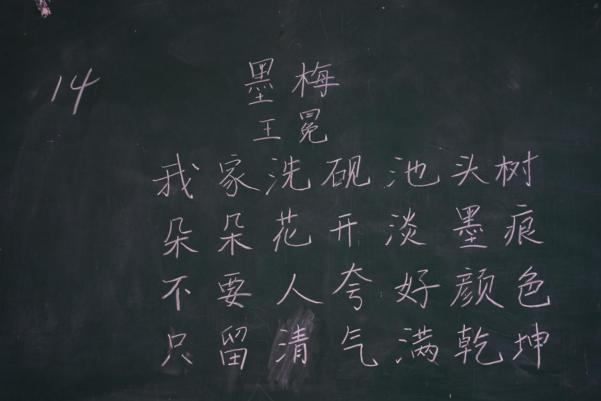 14
墨梅
王冕
我家洗砚池头树
朵朵花开淡墨痕
不要人夸好颜色
只留清气满乾坤